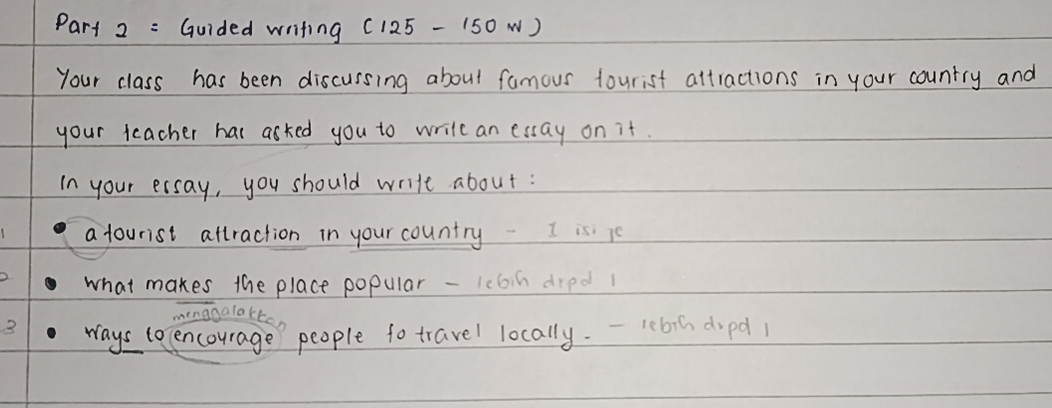 Part 2 : Guided writing (125 - 150 w)
Your class has been discussing about famous tourist attractions in your country and
your teacher has asked you to write an essay on it.
In your essay, you should write about :
1 • a tourist attraction in your country - 1 isi je
2 • what makes the place popular - lebih drpd 1
menggalakkan
3 • ways to encourage people to travel locally. - lebih drpd 1